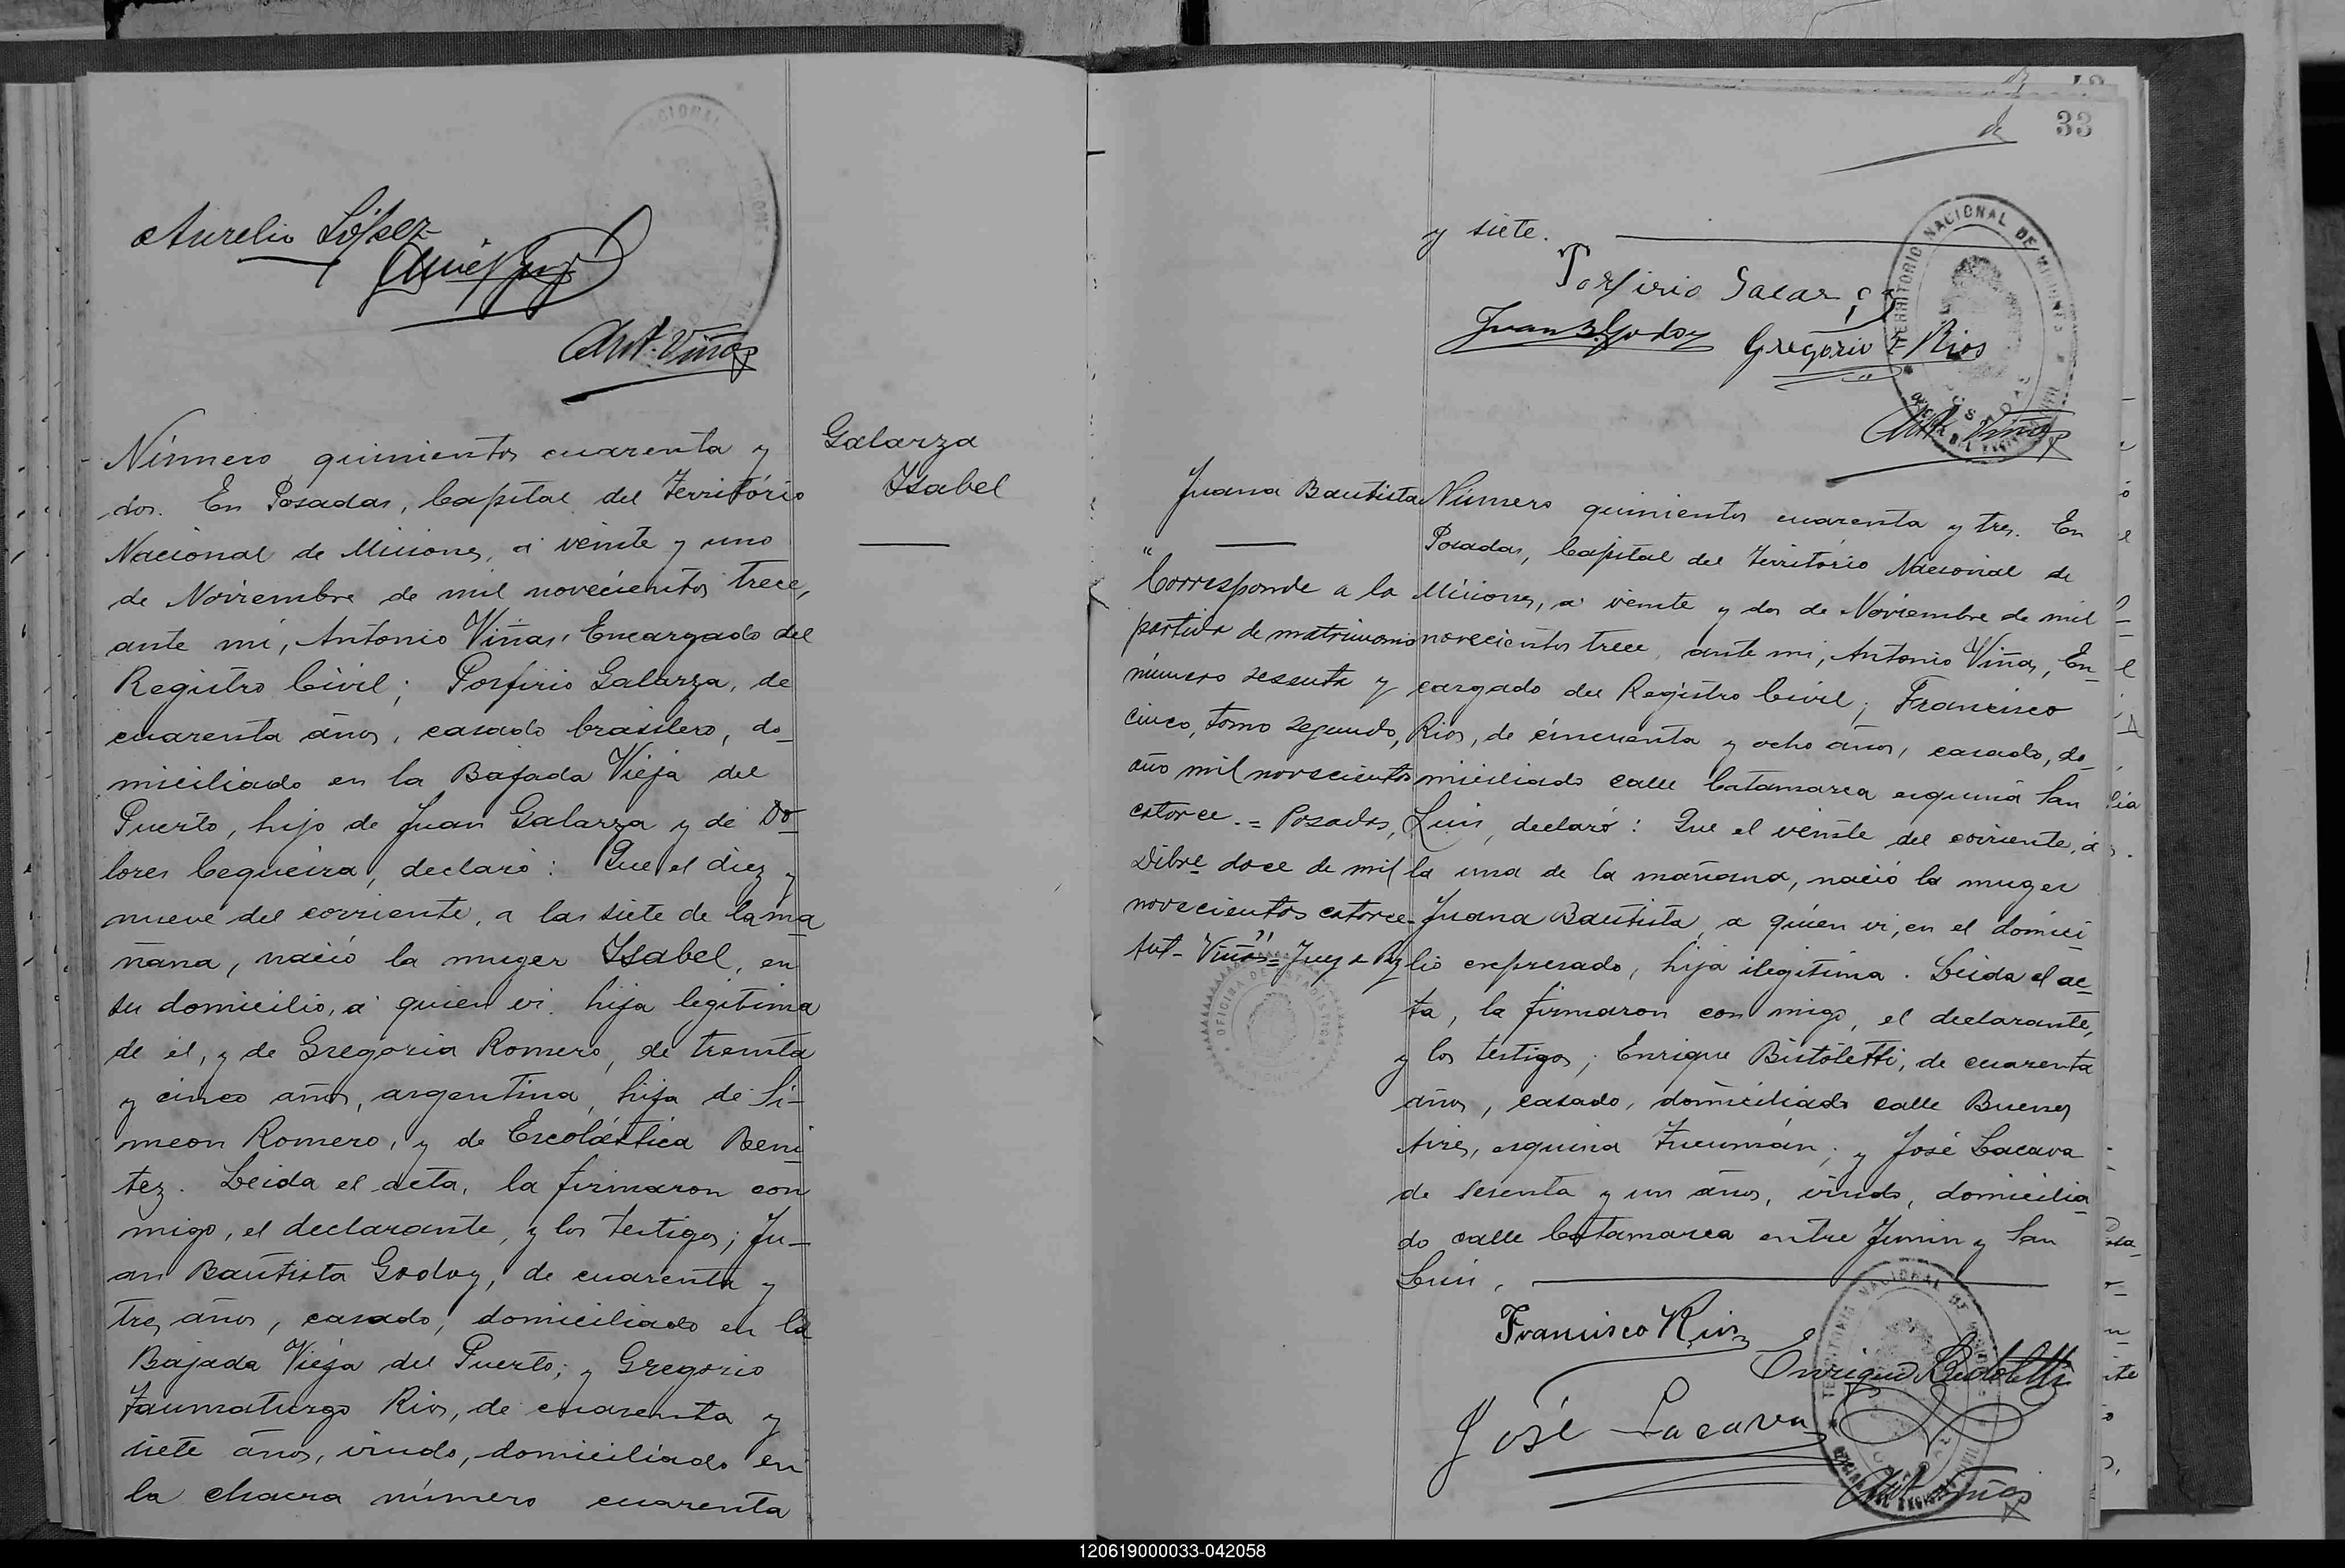 Aurelio López
Ant. Viñas
Número quinientos cuarenta y
dos. En Posadas, Capital del Territorio
Nacional de Misiones, a veinte y uno
de Noviembre de mil novecientos trece,
ante mi, Antonio Viñas, Encargado del
Registro Civil; Porfirio Galarza, de
cuarenta años, casado brasilero, do_
miciliado en la Bajada Vieja del
Puerto, hijo de Juan Galarza y de Do_
lores Cequeira, declaró: Que el diez y
nueve del corriente, a las siete de la ma_
ñana, nació la muger Ysabel, en
su domicilio, á quien vi. hija legitima
de él, y de Gregoria Romero, de treinta
y cinco años, argentina, hija de Si_
meon Romero, y de Escolástica Beni_
tez. Leida el acta, la firmaron con
migo, el declarante, y los testigos; Ju_
an Bautista Godoy, de cuarenta y
tres años, casado, domiciliado en la
Bajada Vieja del Puerto; y Gregorio
Taumaturgo Rios, de cuarenta y
siete años, viudo, domiciliado en
la chacra número cuarenta
Galarza
Ysabel
33
y siete.
Porfirio Galarza
Juan B. Godoy Gregorio T Rios
Ant. Viñas
TERRITORIO NACIONAL DE MISIONES
POSADAS
Juana Bautista
"Corresponde a la
partida de matrimonio
número sesenta y
cinco, tomo segundo,
año mil novecientos
catorce.= Posadas,
Dibre doce de mil
novecientos catorce.
Ant. Viñas"= Juez de Paz
OFICINA DE ESTADISTICA
Número quinientos cuarenta y tres. En
Posadas, Capital del Territorio Nacional de
Misiones, a veinte y dos de Noviembre de mil
novecientos trece, ante mi, Antonio Viñas, En_
cargado del Registro Civil; Francisco
Rios, de cincuenta y ocho años, casado, do_
miciliado calle Catamarca esquina San
Luis, declaró: Que el veinte del corriente, á
la una de la mañana, nació la muger
Juana Bautista, a quien vi, en el domici_
lio expresado, hija ilegitima. Leida el ac_
ta, la firmaron con migo, el declarante,
y los testigos; Enrique Bistoletti, de cuarenta
años, casado, domiciliado calle Buenos
Aires, esquina Tucumán; y José Lacava
de sesenta y un años, viudo, domicilia_
do calle Catamarca entre Junin y San
Luis,
Francisco Rios
Enrique Bistoletti
José Lacava
Ant. Viñas
TERRITORIO NACIONAL DE MISIONES
120619000033-042058